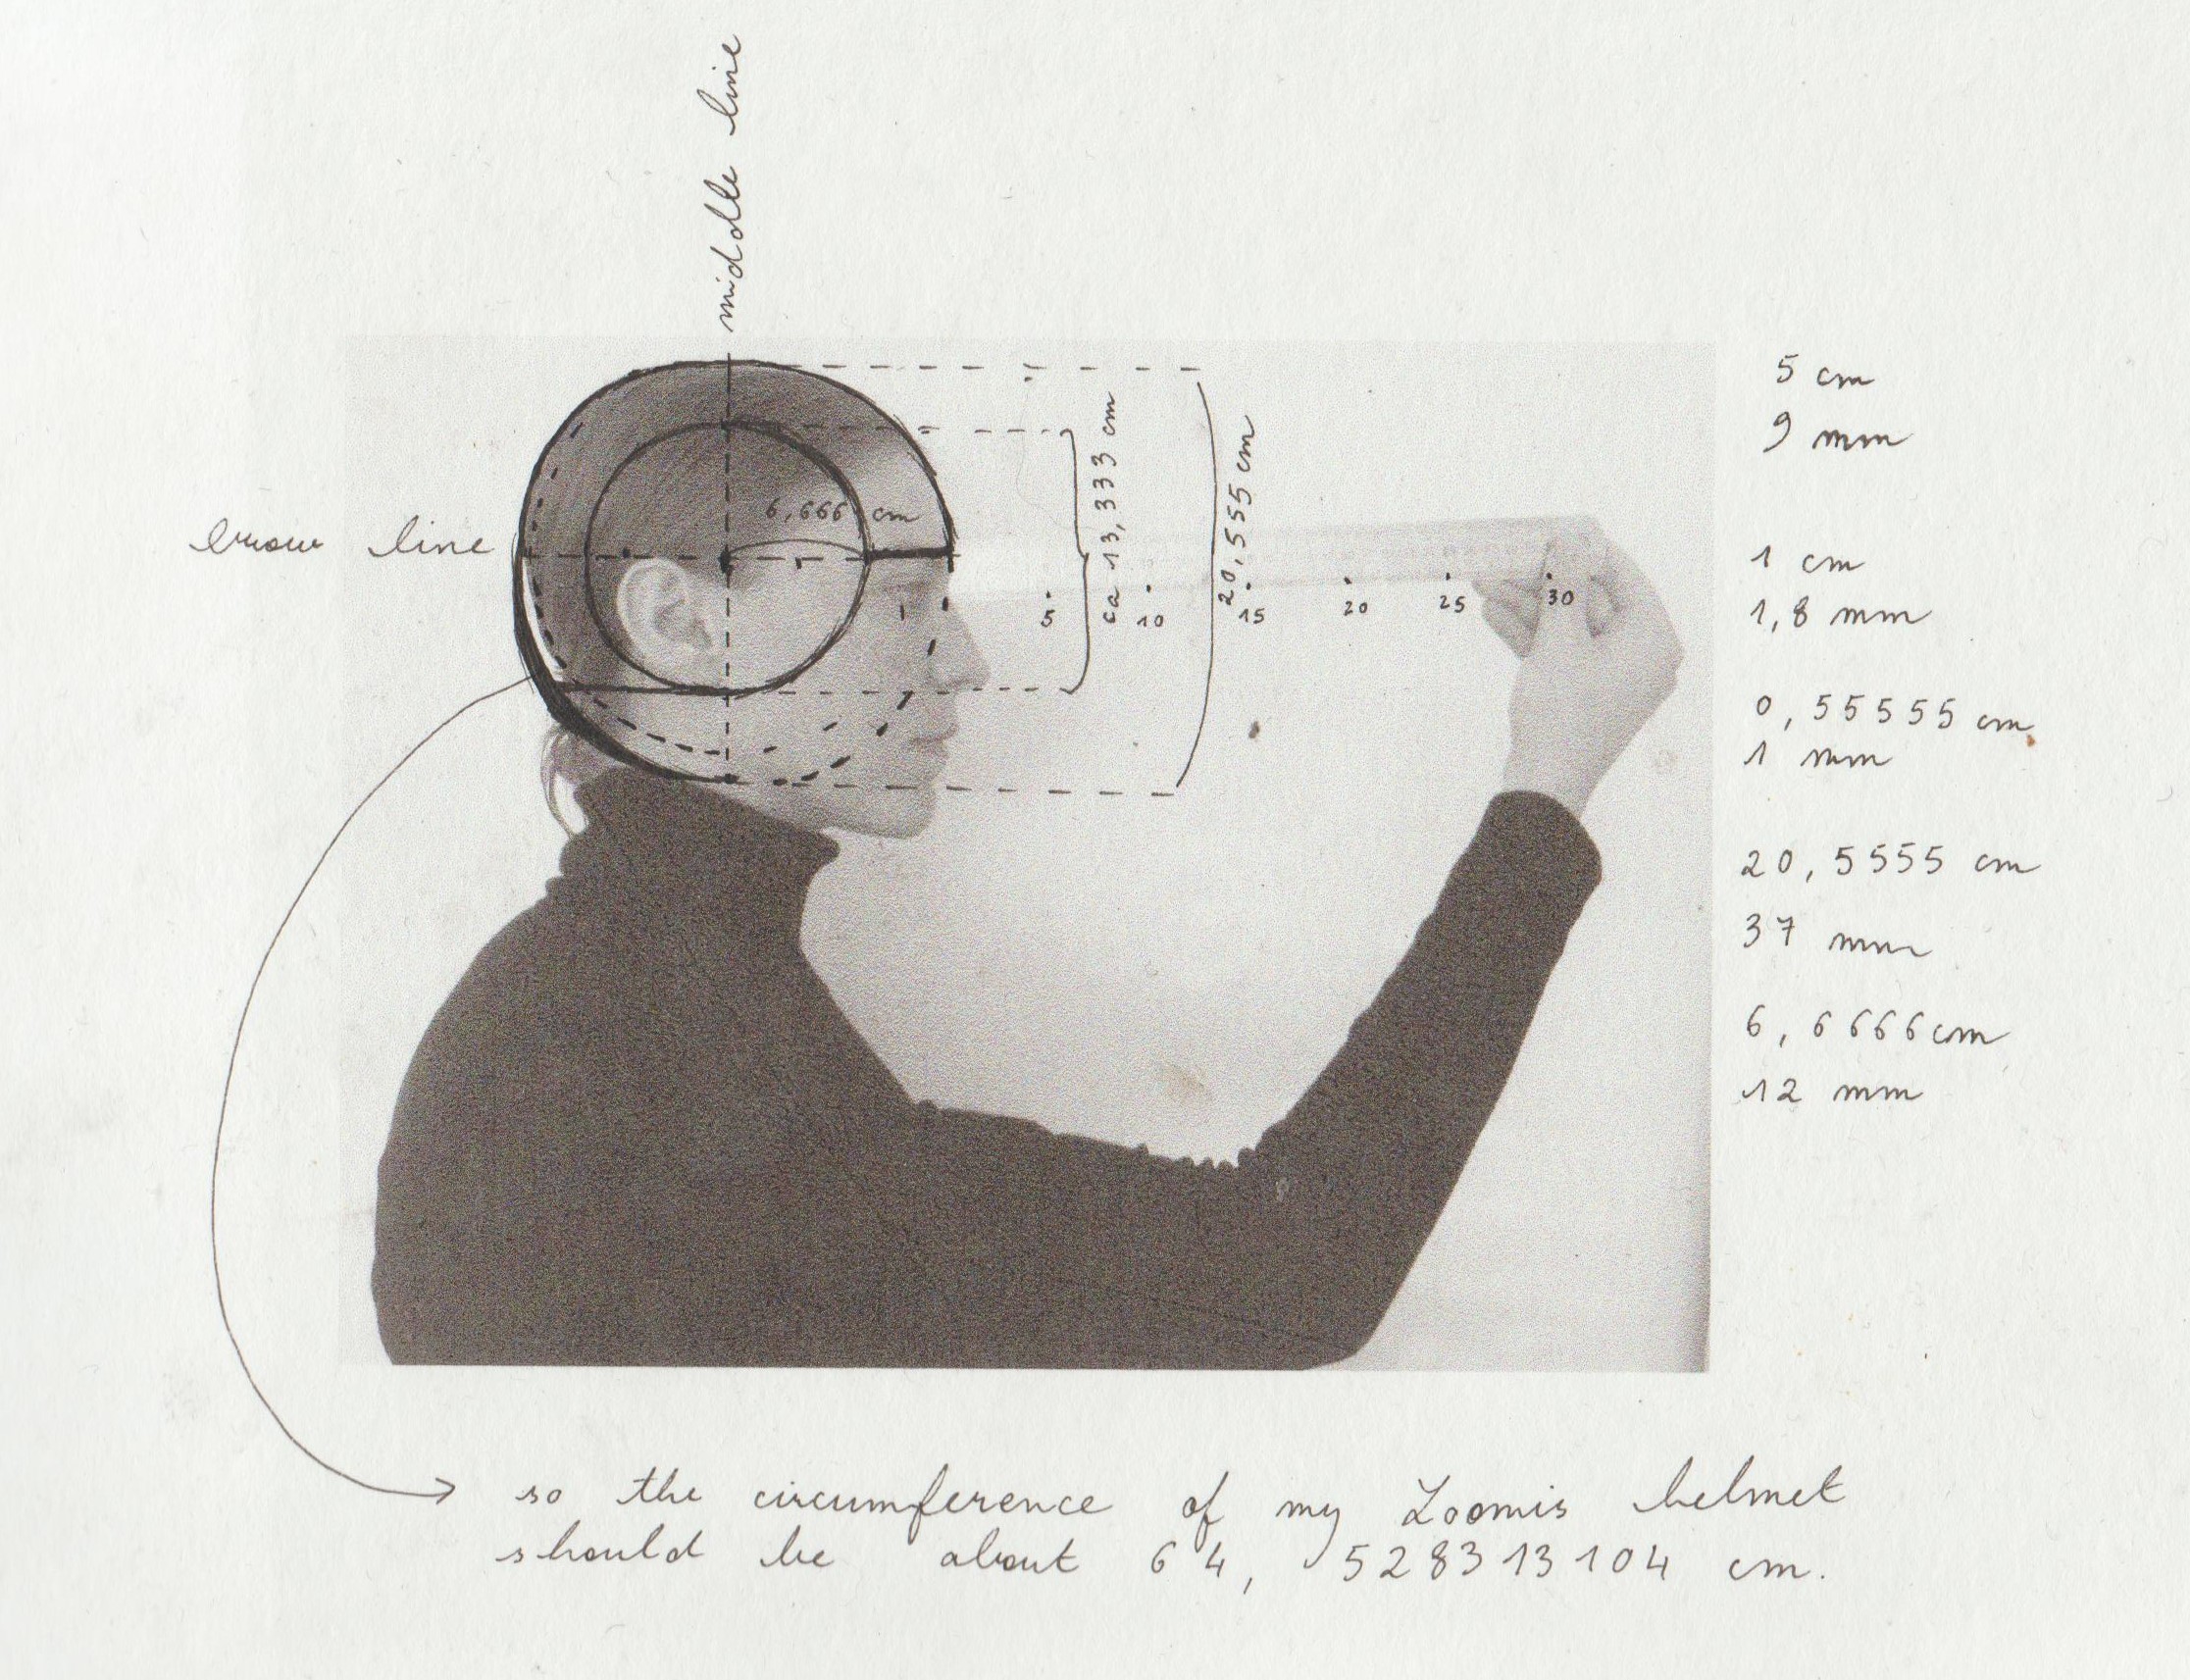 middle line
brow line
6,666 cm
ca 13,333 cm
20,555 cm
5 10 15 20 25 30
5 cm
9 mm
1 cm
1,8 mm
0,55555 cm
1 mm
20,5555 cm
37 mm
6,6666 cm
12 mm
so the circumference of my Loomis helmet
should be about 64,528313104 cm.